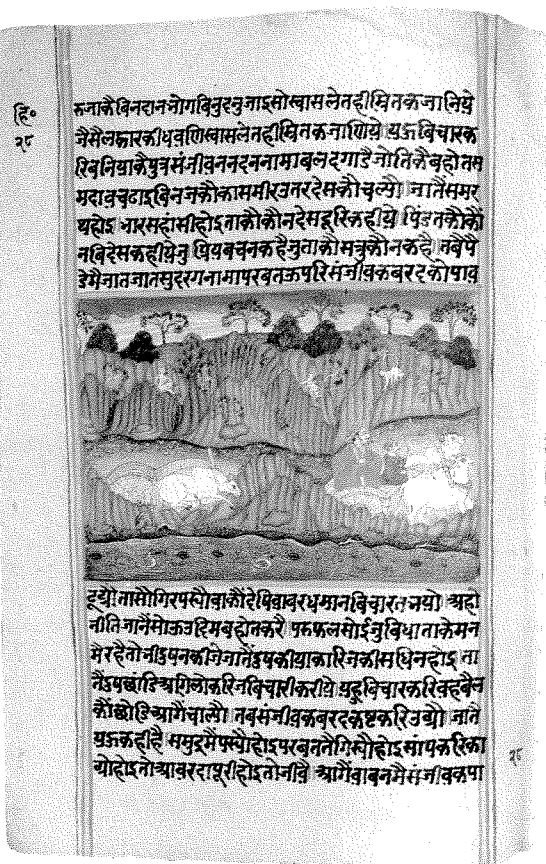 हि॰
२८
रुजाकै बिन दान भोग बिनु दनु जाइ सो स्वास लेत ही म्रितक जानिये
जैसे लहार की धवणि स्वास लेत ही म्रितक जाणिये यह बिचार क
रि बनिया के पुत्र संजीवन नंदन नामा बलद गाडै जोति कै बहोत स
चढाइ बिनज कौ कासमीर उतर देस कौ चल्यौ जातै समर
थ होइ भार सहांसी होइ ताकौ कौन देस दूरि कहीये पिंडत कौ कौ
न बिदेस कहीये नु प्रिय बचन कहै नु ताकौ सत्रु कौन कहै तबे पै
डे मै जात जात सुदरग नामा परबत ऊपरि संजीवक बरद को पाव
टूट्यौ तासौ गिर पस्यौ वाकौं देषि वा बरधमान बिचारत भयौ अहो
नीति जानै सोऊ उदिम बहोत करै परु फल सोई नु बिधाता के मन
मे रहै तो जीउ षन कीजे जातै षकीया कारिज की सधि न होइ ता
तै छाडि अगिलो कारिज बिचारी करीये यहु बिचार करि वह बैल
कौं छोडि आगै चाल्यौ तब संजीवक बरद कष्ट करि उठ्यौ जातै
यह कही है समुद्र मै पस्यौ होइ परबत तै गिस्यौ होइ सांप करि का
ट्यो होइ तो आवरदा पूरी होइ तो जीवै आगैं वा बन मै संजीवक पा
२८